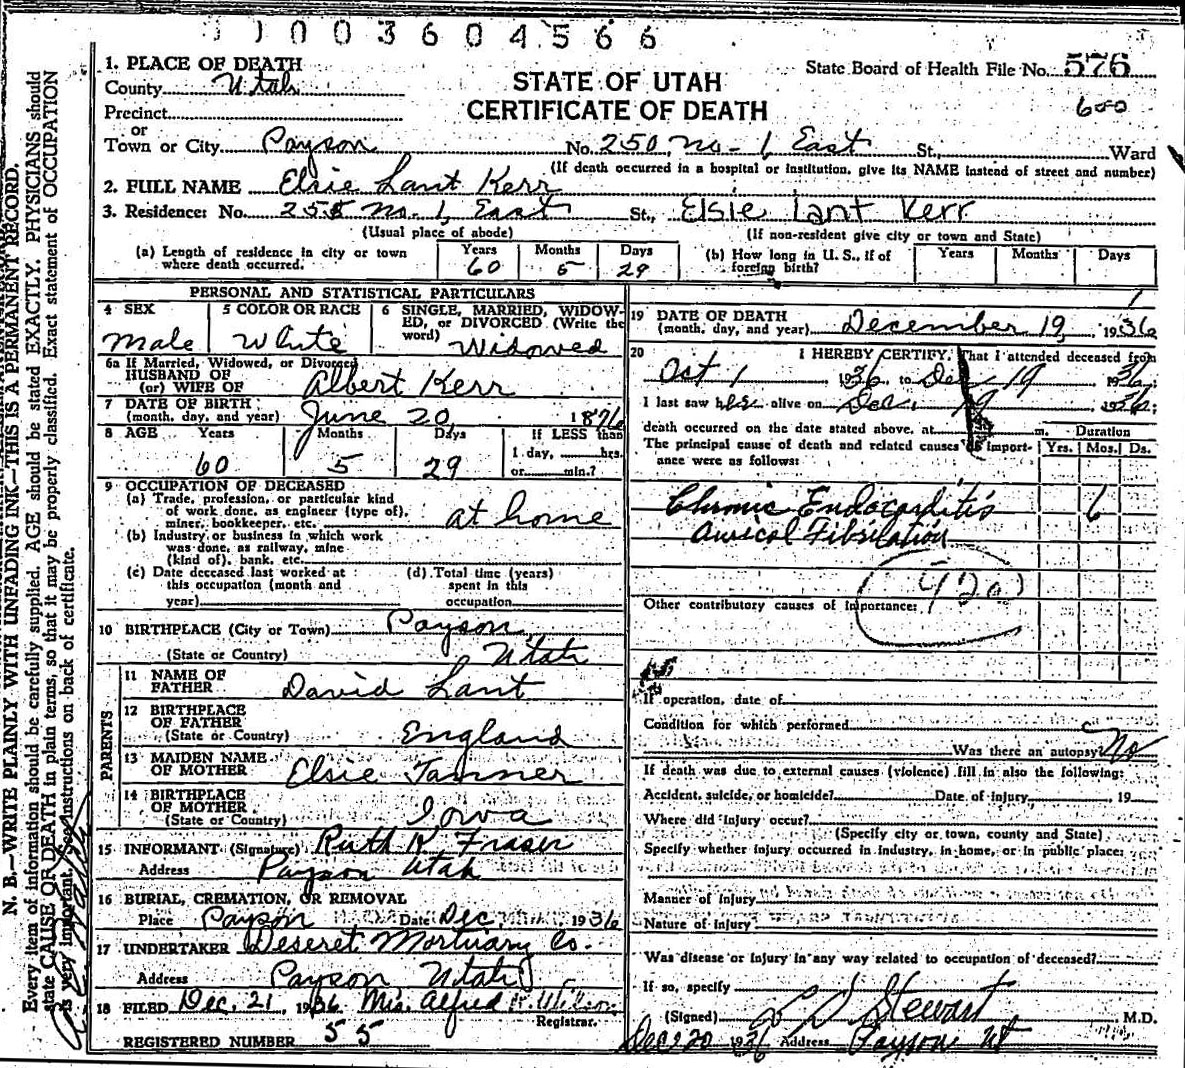 1003604566
1. PLACE OF DEATH
STATE OF UTAH
State Board of Health File No. 576
County Utah
CERTIFICATE OF DEATH
600
Precinct
or
Town or City Payson No. 250 no-1, East St., Ward
(If death occurred in a hospital or institution, give its NAME instead of street and number)
2. FULL NAME Elsie Lant Kerr
3. Residence: No. 255 No. 1, East St., Elsie Lant Kerr
(Usual place of abode) (If non-resident give city or town and State)
(a) Length of residence in city or town where death occurred. Years 60 Months 5 Days 29
(b) How long in U. S., if of foreign birth? Years Months Days
PERSONAL AND STATISTICAL PARTICULARS
4 SEX Male
5 COLOR OR RACE White
6 SINGLE, MARRIED, WIDOWED, or DIVORCED (Write the word) Widowed
6a If Married, Widowed, or Divorced
HUSBAND OF
(or) WIFE OF Albert Kerr
7 DATE OF BIRTH
(month, day, and year) June 20, 1876
8 AGE Years 60 Months 5 Days 29 If LESS than 1 day, hrs. or min.?
9 OCCUPATION OF DECEASED
(a) Trade, profession, or particular kind
of work done, as engineer (type of),
miner, bookkeeper, etc. at home
(b) Industry or business in which work
was done, as railway, mine
(kind of), bank, etc.
(c) Date deceased last worked at
this occupation (month and
year)
(d) Total time (years)
spent in this
occupation
10 BIRTHPLACE (City or Town) Payson
(State or Country) Utah
PARENTS
11 NAME OF
FATHER David Lant
12 BIRTHPLACE
OF FATHER
(State or Country) England
13 MAIDEN NAME
OF MOTHER Elsie Tanner
14 BIRTHPLACE
OF MOTHER
(State or Country) Iowa
15 INFORMANT (Signature) Ruth K Fraser
Address Payson Utah
16 BURIAL, CREMATION, OR REMOVAL
Place Payson Date Dec 1936
17 UNDERTAKER Deseret Mortuary Co.
Address Payson Utah
18 FILED Dec. 21, 1936 Mrs. Alfred R. Wilson
Registrar.
REGISTERED NUMBER 55
19 DATE OF DEATH
(month, day, and year) December 19, 1936
20 I HEREBY CERTIFY, That I attended deceased from
Oct 1 1936, to Dec 19 1936;
I last saw her alive on Dec. 19 1936;
death occurred on the date stated above, at m. Duration
The principal cause of death and related causes of importance were as follows: Yrs. Mos. Ds.
Chronic Endocarditis 6
Auricol Fibrilation
920
Other contributory causes of importance:
If operation, date of
Condition for which performed
Was there an autopsy? No
If death was due to external causes (violence) fill in also the following:
Accident, suicide, or homicide? Date of injury , 19
Where did injury occur?
(Specify city or town, county and State)
Specify whether injury occurred in industry, in home, or in public place:
Manner of injury
Nature of injury
Was disease or injury in any way related to occupation of deceased?
If so, specify
(Signed) L D Stewart M.D.
Dec 20 1936 Address Payson Ut
N. B.—WRITE PLAINLY WITH UNFADING INK—THIS IS A PERMANENT RECORD.
Every item of information should be carefully supplied. AGE should be stated EXACTLY. PHYSICIANS should
state CAUSE OR DEATH in plain terms, so that it may be properly classified. Exact statement of OCCUPATION
is very important. See instructions on back of certificate.